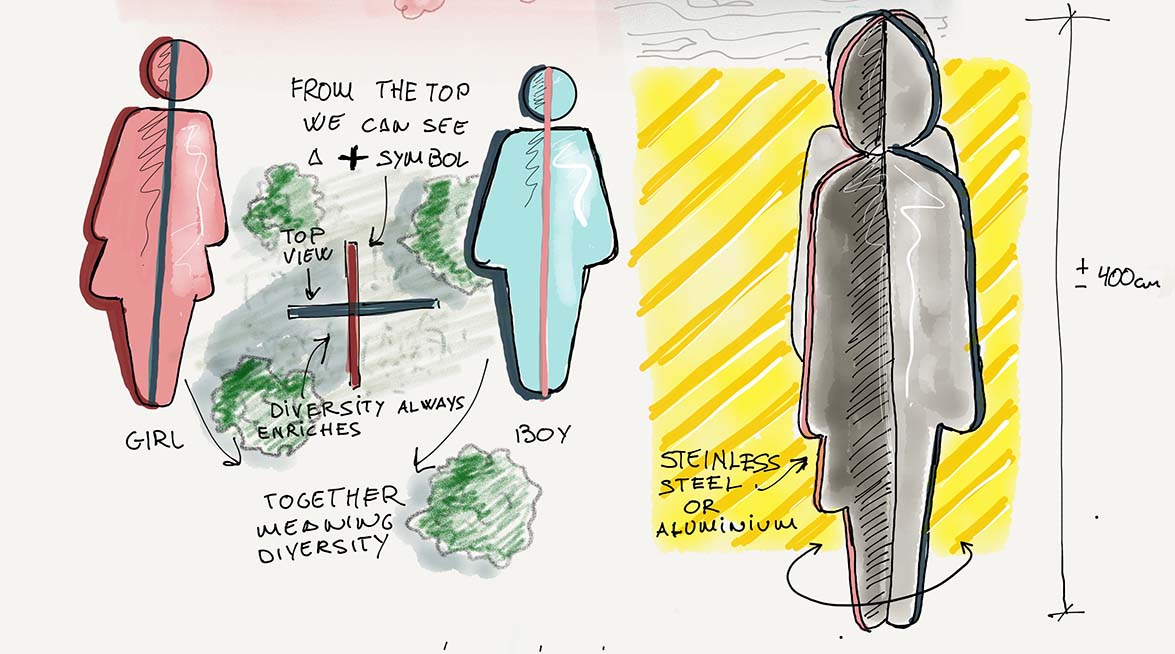 FROM THE TOP
WE CAN SEE
A + SYMBOL
TOP
VIEW
DIVERSITY ALWAYS
ENRICHES
GIRL
BOY
TOGETHER
MEANING
DIVERSITY
STEINLESS
STEEL
OR
ALUMINIUM
± 400cm